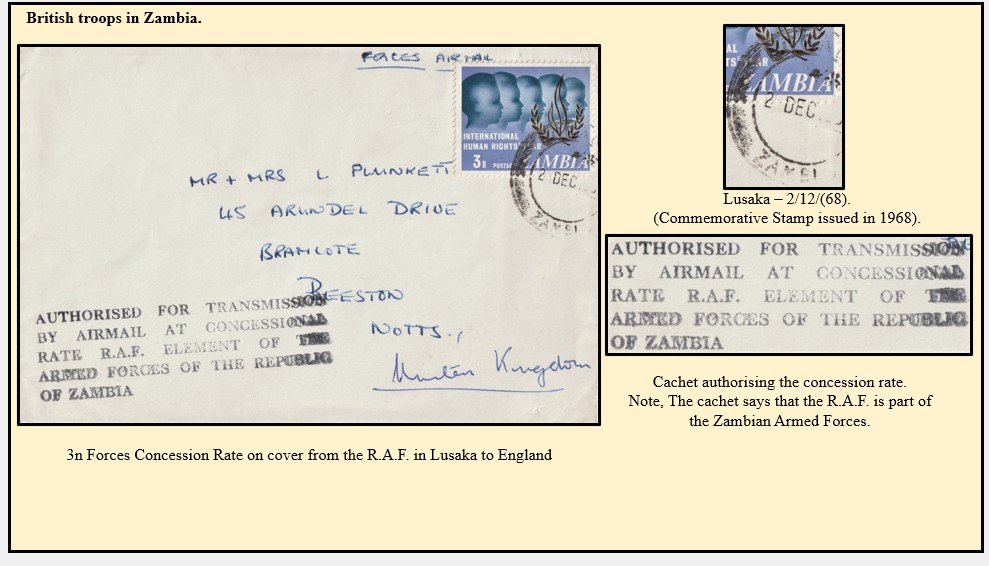 British troops in Zambia.
FORCES AIRMAIL
INTERNATIONAL
HUMAN RIGHTS YEAR
3n POSTAGE ZAMBIA
2 DEC
ZAMBI
MR + MRS L PLUNKETT
45 ARUNDEL DRIVE
BRAMCOTE
BEESTON
NOTTS.,
United Kingdom
AUTHORISED FOR TRANSMISSION
BY AIRMAIL AT CONCESSIONAL
RATE R.A.F. ELEMENT OF THE
ARMED FORCES OF THE REPUBLIC
OF ZAMBIA
3n Forces Concession Rate on cover from the R.A.F. in Lusaka to England
AL
TS' AR
ZAMBIA
2 DEC
ZAMBI
Lusaka – 2/12/(68).
(Commemorative Stamp issued in 1968).
AUTHORISED FOR TRANSMISSION
BY AIRMAIL AT CONCESSIONAL
RATE R.A.F. ELEMENT OF THE
ARMED FORCES OF THE REPUBLIC
OF ZAMBIA
Cachet authorising the concession rate.
Note, The cachet says that the R.A.F. is part of
the Zambian Armed Forces.